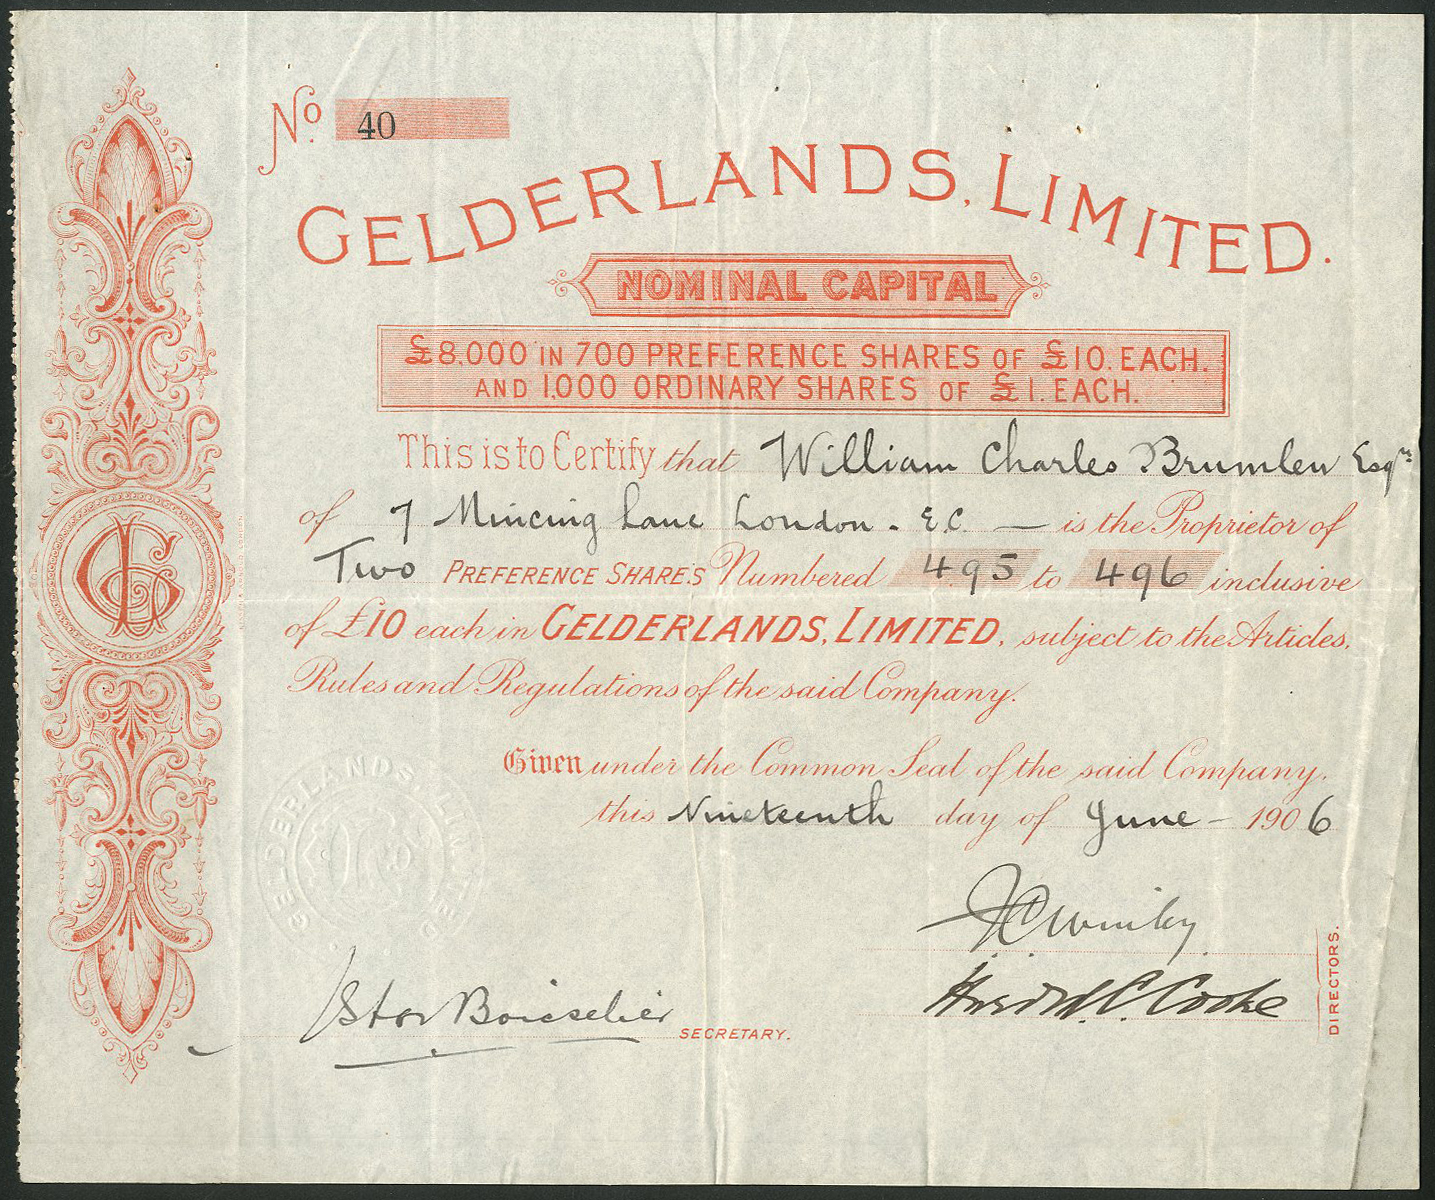 No. 40
GELDERLANDS, LIMITED.
NOMINAL CAPITAL
£8,000 IN 700 PREFERENCE SHARES OF £10. EACH.
AND 1,000 ORDINARY SHARES OF £1. EACH.
This is to Certify that William Charles Brumleu Esqre
of 7 Mincing Lane London. E.C. — is the Proprietor of
Two PREFERENCE SHARES Numbered 495 to 496 inclusive
of £10 each in GELDERLANDS, LIMITED, subject to the Articles,
Rules and Regulations of the said Company.
Given under the Common Seal of the said Company,
this Nineteenth day of June – 1906
GELDERLANDS LIMITED
DIRECTORS.
Boisselier
SECRETARY.
C. Cooke